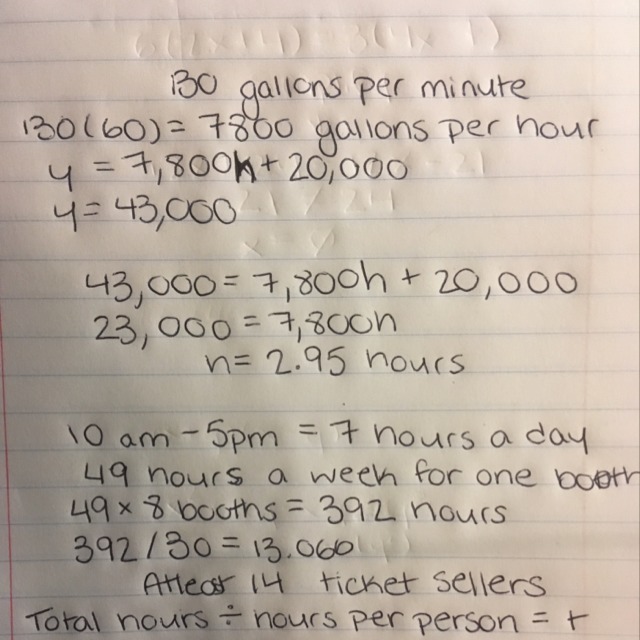 130 gallons per minute
130(60) = 7800 gallons per hour
y = 7,800h + 20,000
y = 43,000
43,000 = 7,800h + 20,000
23,000 = 7,800h
h = 2.95 hours
10 am - 5pm = 7 hours a day
49 hours a week for one booth
49 × 8 booths = 392 hours
392/30 = 13.060
Atleast 14 ticket sellers
Total hours ÷ hours per person = t